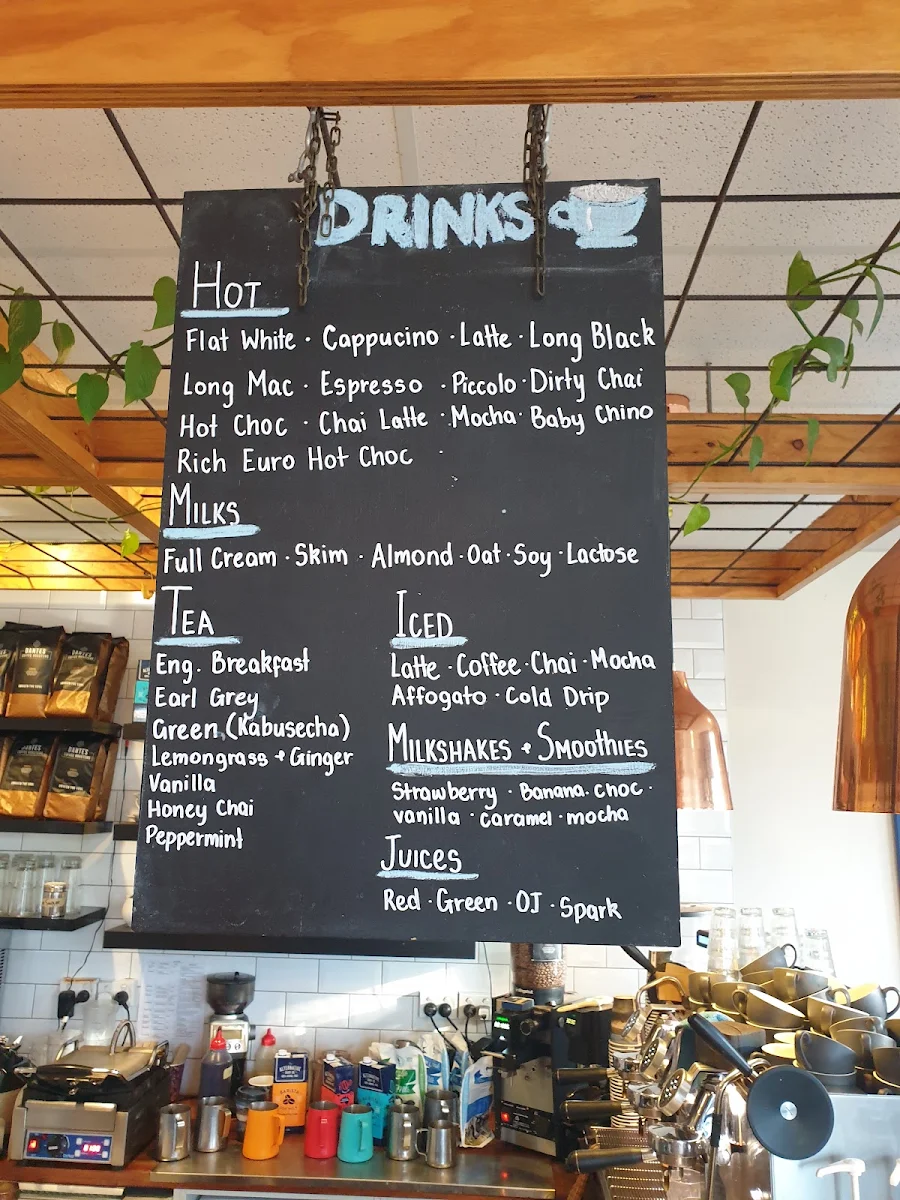 DRINKS
HOT
Flat White · Cappucino · Latte · Long Black
Long Mac · Espresso · Piccolo · Dirty Chai
Hot Choc · Chai Latte · Mocha · Baby Chino
Rich Euro Hot Choc ·
MILKS
Full Cream · Skim · Almond · Oat · Soy · Lactose
TEA
Eng. Breakfast
Earl Grey
Green (Kabusecha)
Lemongrass + Ginger
Vanilla
Honey Chai
Peppermint
ICED
Latte · Coffee · Chai · Mocha
Affogato · Cold Drip
MILKSHAKES + SMOOTHIES
Strawberry · Banana. choc ·
vanilla · caramel · mocha
JUICES
Red · Green · OJ · Spark
DANTE'S
DANTE'S
DANTE'S
DANTE'S